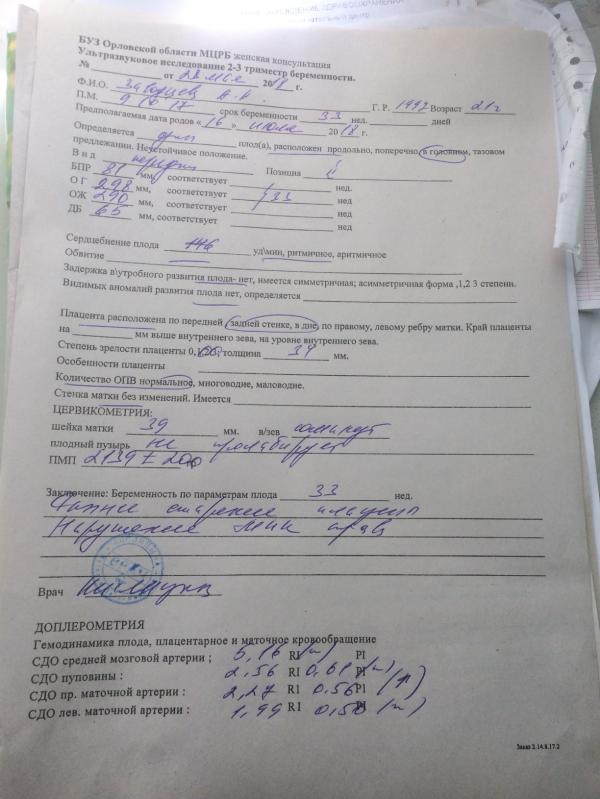 БУЗ Орловской области МЦРБ женская консультация
Ультразвуковое исследование 2-3 триместр беременности.
№ от 22 мая 2018 г.
Ф.И.О. Г. Р. 1997 Возраст 21 г
П.М. 9 10 17 срок беременности 33 нед. дней
Предполагаемая дата родов « 16 » июля 2018 г.
Определяется один плод(а), расположен продольно, поперечно, в головном, тазовом
предлежании. Неустойчивое положение.
В и д передний Позиция II
БПР 81 мм, соответствует нед.
О Г 298 мм, соответствует 33 нед
ОЖ 290 мм, соответствует нед
ДБ 65 мм, соответствует нед
Сердцебиение плода 146 уд\мин, ритмичное, аритмичное
Обвитие
Задержка в\утробного развития плода- нет, имеется симметричная; асимметричная форма ,1,2 3 степени.
Видимых аномалий развития плода нет, определяется
Плацента расположена по передней задней стенке, в дне, по правому, левому ребру матки. Край плаценты
на мм выше внутреннего зева, на уровне внутреннего зева.
Степень зрелости плаценты 0,1,2,3, толщина 34 мм.
Особенности плаценты
Количество ОПВ нормальное, многоводие, маловодие.
Стенка матки без изменений. Имеется
ЦЕРВИКОМЕТРИЯ:
шейка матки 39 мм. в/зев сомкнут
плодный пузырь не пролабирует
ПМП 2139 ± 200
Заключение: Беременность по параметрам плода 33 нед.
старение плаценты
Нарушение МПК
Врач
ДОПЛЕРОМЕТРИЯ
Гемодинамика плода, плацентарное и маточное кровообращение
СДО средней мозговой артерии ; 5,16 RI (N) PI
СДО пуповины : 2,56 RI 0,61 PI (N)
СДО пр. маточной артерии : 2,27 RI 0,56 PI
СДО лев. маточной артерии : 1,99 RI 0,50 PI (N)
Заказ 2.14.8.17.2